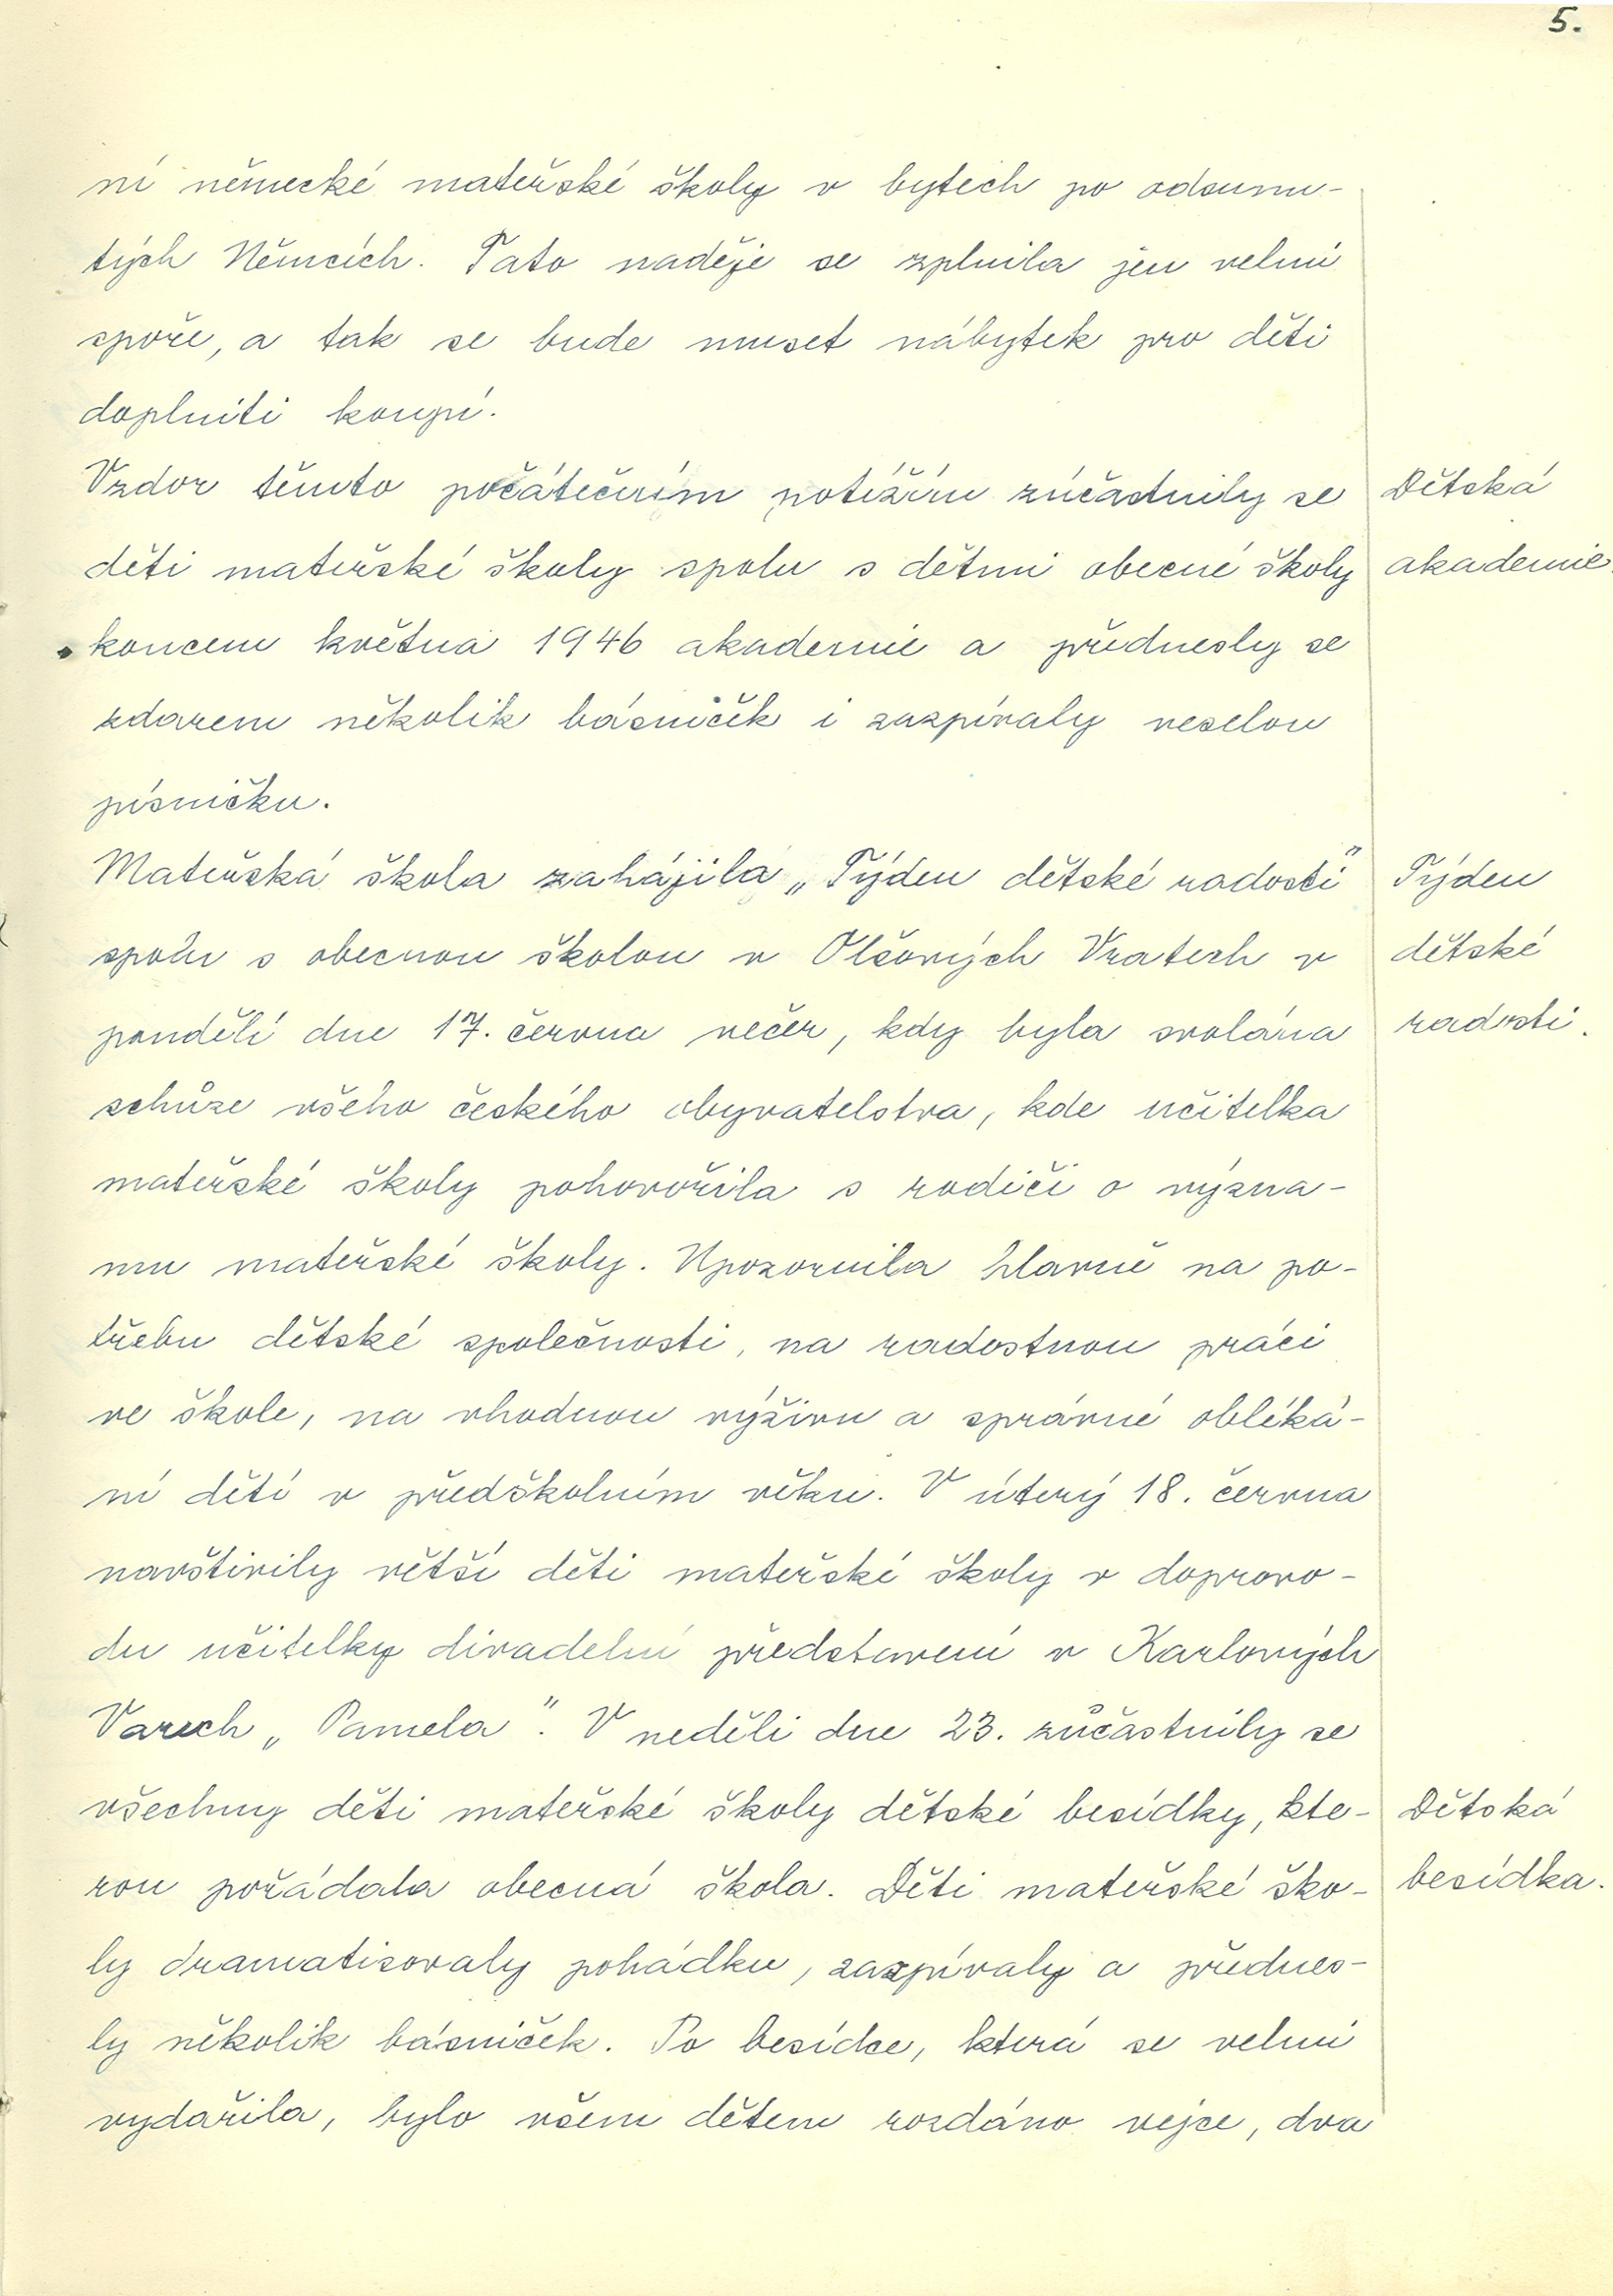 5.
ní německé mateřské školy v bytech po odsunu-
tých Němcích. Tato naděje se zplnila jen velmi
spoře, a tak se bude muset nábytek pro děti
doplniti koupí.
Vzdor těmto počátečním potížím zúčadnily se
děti mateřské školy spolu s dětmi obecné školy
koncem května 1946 akademie a přednesly se
zdarem několik básniček i zazpívaly veselou
písničku.
Dětská
akademie.
Mateřská škola zahájila „Týden dětské radosti"
spolu s obecnou školou v Olšových Vratech v
pondělí dne 17. června večer, kdy byla svolána
schůze všeho českého obyvatelstva, kde učitelka
mateřské školy pohovořila s rodiči o význa-
mu mateřské školy. Upozornila hlavně na po-
třebu dětské společnosti, na radostnou práci
ve škole, na vhodnou výživu a správné obléká-
ní dětí v předškolním věku. V úterý 18. června
navštívily větší děti mateřské školy v doprovo-
du učitelky divadelní představení v Karlových
Varech „Pamela". V neděli dne 23. zůčastnily se
Týden
dětské
radosti.
všechny děti mateřské školy dětské besídky, kte-
rou pořádala obecná škola. Děti mateřské ško-
ly dramatisovaly pohádku, zazpívaly a předne-
ly několik básniček. Po besídce, která se velmi
vydařila, bylo všem dětem rozdáno vejce, dva
Dětská
besídka.